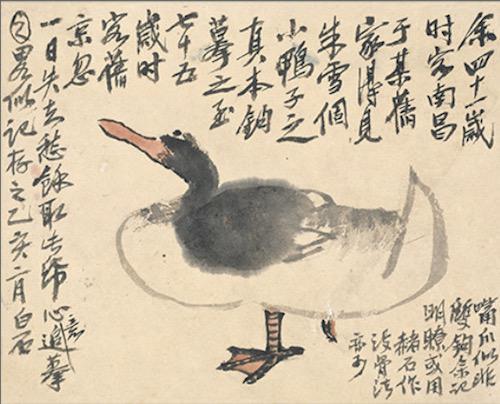 余四十一歲
时客南昌
于某舊
家得見
朱雪個
小鴨子之
真本鈎
摹之至
七十五
歲时
客舊
京忽
一日失去愁餘取此帋心意追摹
之畧似記存之乙亥二月白石
嘴爪似非
雙鈎余記
明瞭或用
赭石作
没骨法
亦可